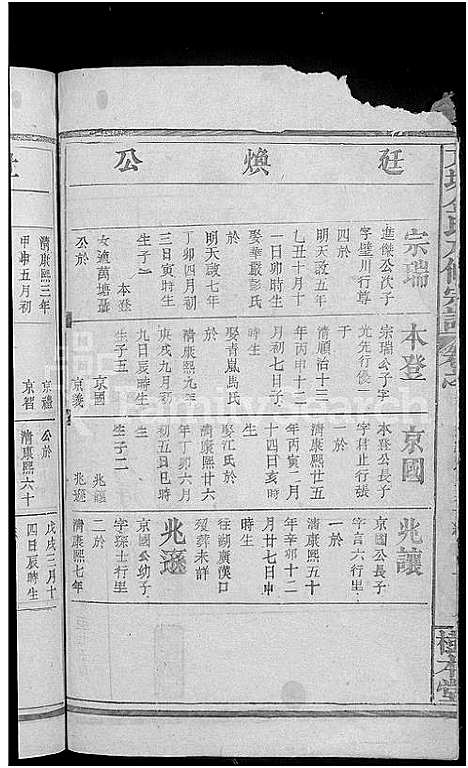 廷煥公
宗瑞
進榮公次子
字璧川行尊
四於
明天啟五年
乙丑十月十
一日卯時生
娶華嚴彭氏
於
明天啟七年
丁卯四月初
三日寅時生
生子一
本登
女適萬塘聶
公於
本登
宗瑞公子字
文先行俊一
于
清順治十三
年丙申十二
月初七日子
時生
娶青嵐馬氏
於
清康熙九年
庚戌九月初
九日辰時生
生子五
京國
京義
京國
本登公長子
字君止行張
一於
清康熙廿五
年丙寅二月
十四日亥時
生
娶江氏於
清康熙廿六
年丁卯六月
初五日巳時
生子二
兆讓
兆遜
兆讓
京國公長子
字言六行里
一於
清康熙五十
年辛卯十二
月廿七日申
時生
往湖廣漢口
歿葬未詳
兆遜
京國公幼子
字琛士行里
二於
清康熙七年
清康熙三年
甲申五月初
京禮
京智
公於
清康熙六十
戊戌三月十
四日辰時生
敦本堂
FamilySearch